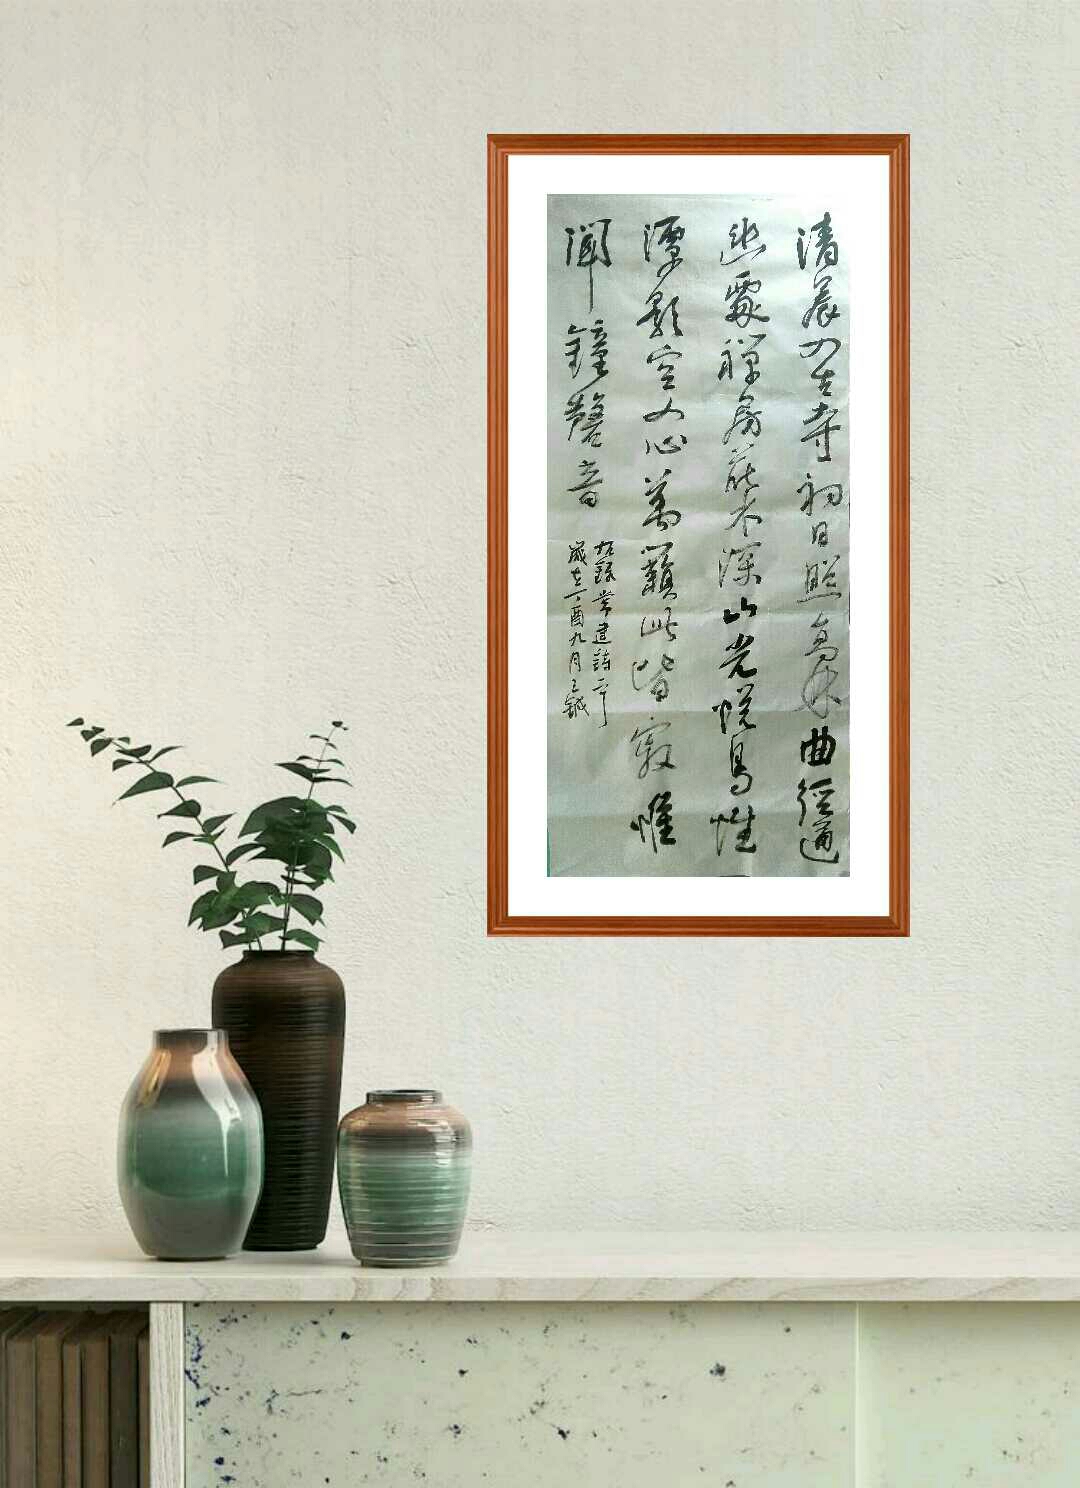 清晨入古寺初日照高林曲徑通
幽處禪房花木深山光悅鳥性
潭影空人心萬籟此皆寂惟
聞鐘磬音
右錄常建詩一首
歲在丁酉九月